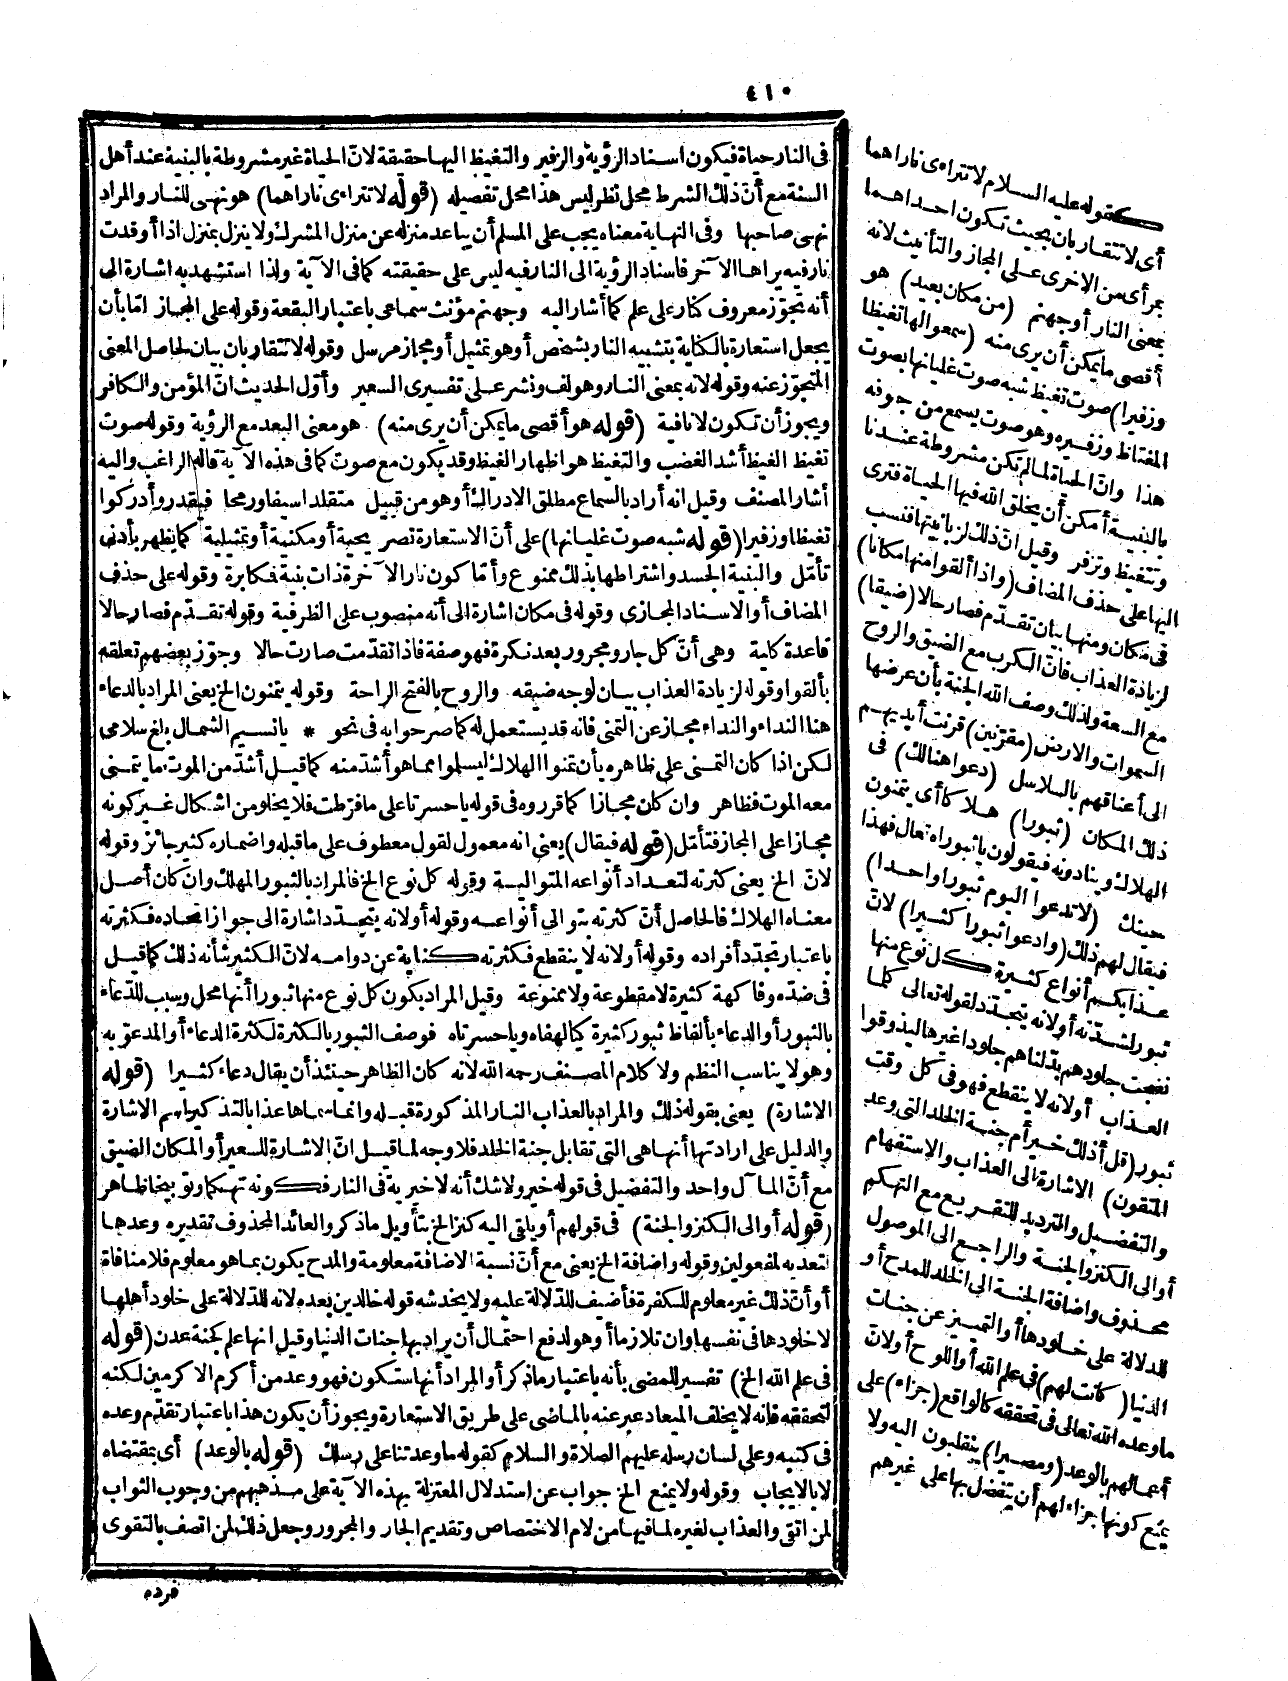 ٤١٠
فى النار حياة فيكون اسناد الرؤية والزفير والتغيظ اليها حقيقة لانّ الحياة غير مشروطة بالبنية عند أهل
السنة مع أنّ ذلك الشرط محل نظر ليس هذا محل تفصيله (قوله لا تتراءى ناراهما) هو نهى للنار والمراد
نهى صاحبها وفى النهاية معناه يجب على المسلم أن يباعد منزله عن منزل المشرك ولا ينزل بمنزل اذا أوقدت
نار فيه يراها الآخر فاسناد الرؤية الى النار فيه ليس على حقيقته كما فى الآية ولذا استشهد به اشارة الى
أنه تجوّز معروف كنار على علم كما أشار اليه وجهنم مؤنث سماعى باعتبار البقعة وقوله على المجاز امّا بأن
يجعل استعارة بالكناية بتشبيه النار بشخص أو هو تمثيل أو مجاز مرسل وقوله لا تتقاربان بيان لحاصل المعنى
المتجوّز عنه وقوله لانه بمعنى النار وهو لف ونشر على تفسيرى السعير وأوّل الحديث انّ المؤمن والكافر
ويجوز أن تكون لا نافية (قوله هو أقصى ما يمكن أن يرى منه) هو معنى البعد مع الرؤية وقوله صوت
تغيظ الغيظ أشد الغضب والتغيظ هو اظهار الغيظ وقد يكون مع صوت كما فى هذه الآية قاله الراغب واليه
أشار المصنف وقيل انه أراد بالسماع مطلق الادراك أو هو من قبيل متقلدا سيفا ورمحا فيقدر وأدركوا
تغيظا وزفيرا (قوله شبه صوت غليانها) على أنّ الاستعارة تصريحية أو مكنية أو تمثيلية كما يظهر بأدنى
تأمّل والبنية الجسد واشتراطها بذلك ممنوع وأمّا كون نار الآخرة ذات بنية فمكابرة وقوله على حذف
المضاف أو الاسناد المجازى وقوله فى مكان اشارة الى أنه منصوب على الظرفية وقوله تقدّم فصار حالا
قاعدة كلية وهى أنّ كل جار ومجرور بعد نكرة فهو صفة فاذا تقدّمت صارت حالا وجوّز بعضهم تعلقه
بألقوا وقوله لزيادة العذاب بيان لوجه ضيقه والروح بالفتح الراحة وقوله يتمنون الخ يعنى المراد بالدعاء
هنا النداء والنداء مجاز عن التمنى فانه قد يستعمل له كما صرحوا به فى نحو * يا نسيم الشمال بلغ سلامى
لكن اذا كان التمنى على ظاهره بأن تمنوا الهلاك ليسلموا مما هو أشدّ منه كما قيل أشدّ من الموت ما يتمنى
معه الموت فظاهر وان كان مجازا كما قرروه فى قوله يا حسرتا على ما فرّطت فلا يخلو من اشكال غير كونه
مجازا على المجاز فتأمّل (قوله فيقال) يعنى انه معمول لقول معطوف على ما قبله واضماره كثير جائز وقوله
لانّ الخ يعنى كثرته لتعداد أنواعه المتوالية وقوله كل نوع الخ فالمراد بالثبور المهلك وان كان أصل
معناه الهلاك فالحاصل أنّ كثرته بتوالى أنواعه وقوله أو لانه يتجدّد اشارة الى جواز اتحاده فكثرته
باعتبار تجدّد أفراده وقوله أو لانه لا ينقطع فكثرته كناية عن دوامه لانّ الكثير شأنه ذلك كما قيل
فى ضدّه وفاكهة كثيرة لا مقطوعة ولا ممنوعة وقيل المراد يكون كل نوع منها ثبورا أنها محل وسبب للدّعاء
بالثبور أو الدعاء بألفاظ ثبور كثيرة كيا لهفاه ويا حسرتاه فوصف الثبور بالكثرة لكثرة الدعاء أو المدعوّ به
وهو لا يناسب النظم ولا كلام المصنف رحمه الله لانه كان الظاهر حينئذ أن يقال دعاء كثيرا (قوله
الاشارة) يعنى بقوله ذلك والمراد بالعذاب النار المذكورة قبله وانما سماها عذابا لتذكير اسم الاشارة
والدليل على ارادتها أنها هى التى تقابل جنة الخلد فلا وجه لما قيل انّ الاشارة للسعير أو المكان الضيق
مع أنّ المآل واحد والتفضيل فى قوله خير ولا شك أنه لا خيرية فى النار فكونه تهكما وتوبيخا ظاهر
(قوله أو الى الكنز والجنة) فى قولهم أو يلقى اليه كنز الخ بتأويل ما ذكر والعائد المحذوف تقديره وعدها
لتعديه لمفعولين وقوله واضافة الخ يعنى مع أنّ نسبة الاضافة معلومة والمدح يكون بما هو معلوم فلا منافاة
أو أنّ ذلك غير معلوم للكفرة فأضيف للدّلالة عليه ولا يخدشه قوله خالدين بعده لانه للدّلالة على خلود أهلها
لا خلودها فى نفسها وان تلازما أو هو لدفع احتمال أن يراد بها جنات الدنيا وقيل انها علم كجنة عدن (قوله
فى علم الله الخ) تفسير للمضى بأنه باعتبار ما ذكر أو المراد أنها ستكون فهو وعد من أكرم الاكرمين لكنه
لتحققه فانه لا يخلف الميعاد عبر عنه بالماضى على طريق الاستعارة ويجوز أن يكون هذا باعتبار تقدّم وعده
فى كتبه وعلى لسان رسله عليهم الصلاة والسلام كقوله ما وعدتنا على رسلك (قوله بالوعد) أى بمقتضاه
لا بالايجاب وقوله ولا يمنع الخ جواب عن استدلال المعتزلة بهذه الآية على مذهبهم من وجوب الثواب
لمن اتقى والعذاب لغيره لما فيها من لام الاختصاص وتقديم الجار والمجرور وجعل ذلك لمن اتصف بالتقوى
فرده
كقوله عليه السلام لا تتراءى ناراهما
أى لا تتقاربان بحيث تكون احداهما
بمرأى من الاخرى على المجاز والتأنيث لانه
بمعنى النار أو جهنم (من مكان بعيد) هو
أقصى ما يمكن أن يرى منه (سمعوا لها تغيظا
وزفيرا) صوت تغيظ شبه صوت غليانها بصوت
المغتاظ وزفيره وهو صوت يسمع من جوفه
هذا وانّ الحياة لما لم تكن مشروطة عندنا
بالبنية أمكن أن يخلق الله فيها الحياة فترى
وتتغيظ وتزفر وقيل انّ ذلك لزبانيتها فنسب
اليها على حذف المضاف (واذا ألقوا منها مكانا)
فى مكان ومنها بيان تقدّم فصار حالا (ضيقا)
لزيادة العذاب فانّ الكرب مع الضيق والروح
مع السعة ولذلك وصف الله الجنة بأن عرضها
السموات والارض (مقرّنين) قرنت أيديهم
الى أعناقهم بالسلاسل (دعوا هنالك) فى
ذلك المكان (ثبورا) هلاكا أى يتمنون
الهلاك وينادونه فيقولون يا ثبوراه تعال فهذا
حينك (لا تدعوا اليوم ثبورا واحدا)
فيقال لهم ذلك (وادعوا ثبورا كثيرا) لانّ
عذابكم أنواع كثيرة كل نوع منها
ثبور لشدّته أو لانه يتجدّد لقوله تعالى كلما
نضجت جلودهم بدّلناهم جلودا غيرها ليذوقوا
العذاب أو لانه لا ينقطع فهو فى كل وقت
ثبور (قل أذلك خير أم جنة الخلد التى وعد
المتقون) الاشارة الى العذاب والاستفهام
والتفضيل والترديد للتقريع مع التهكم
أو الى الكنز والجنة والراجع الى الموصول
محذوف واضافة الجنة الى الخلد للمدح أو
للدلالة على خلودها أو التمييز عن جنات
الدنيا (كانت لهم) فى علم الله أو اللوح أو لانّ
ما وعده الله تعالى فى تحققه كالواقع (جزاء) على
أعمالهم بالوعد (ومصيرا) ينقلبون اليه ولا
يمنع كونها جزاء لهم أن يتفضل بها على غيرهم